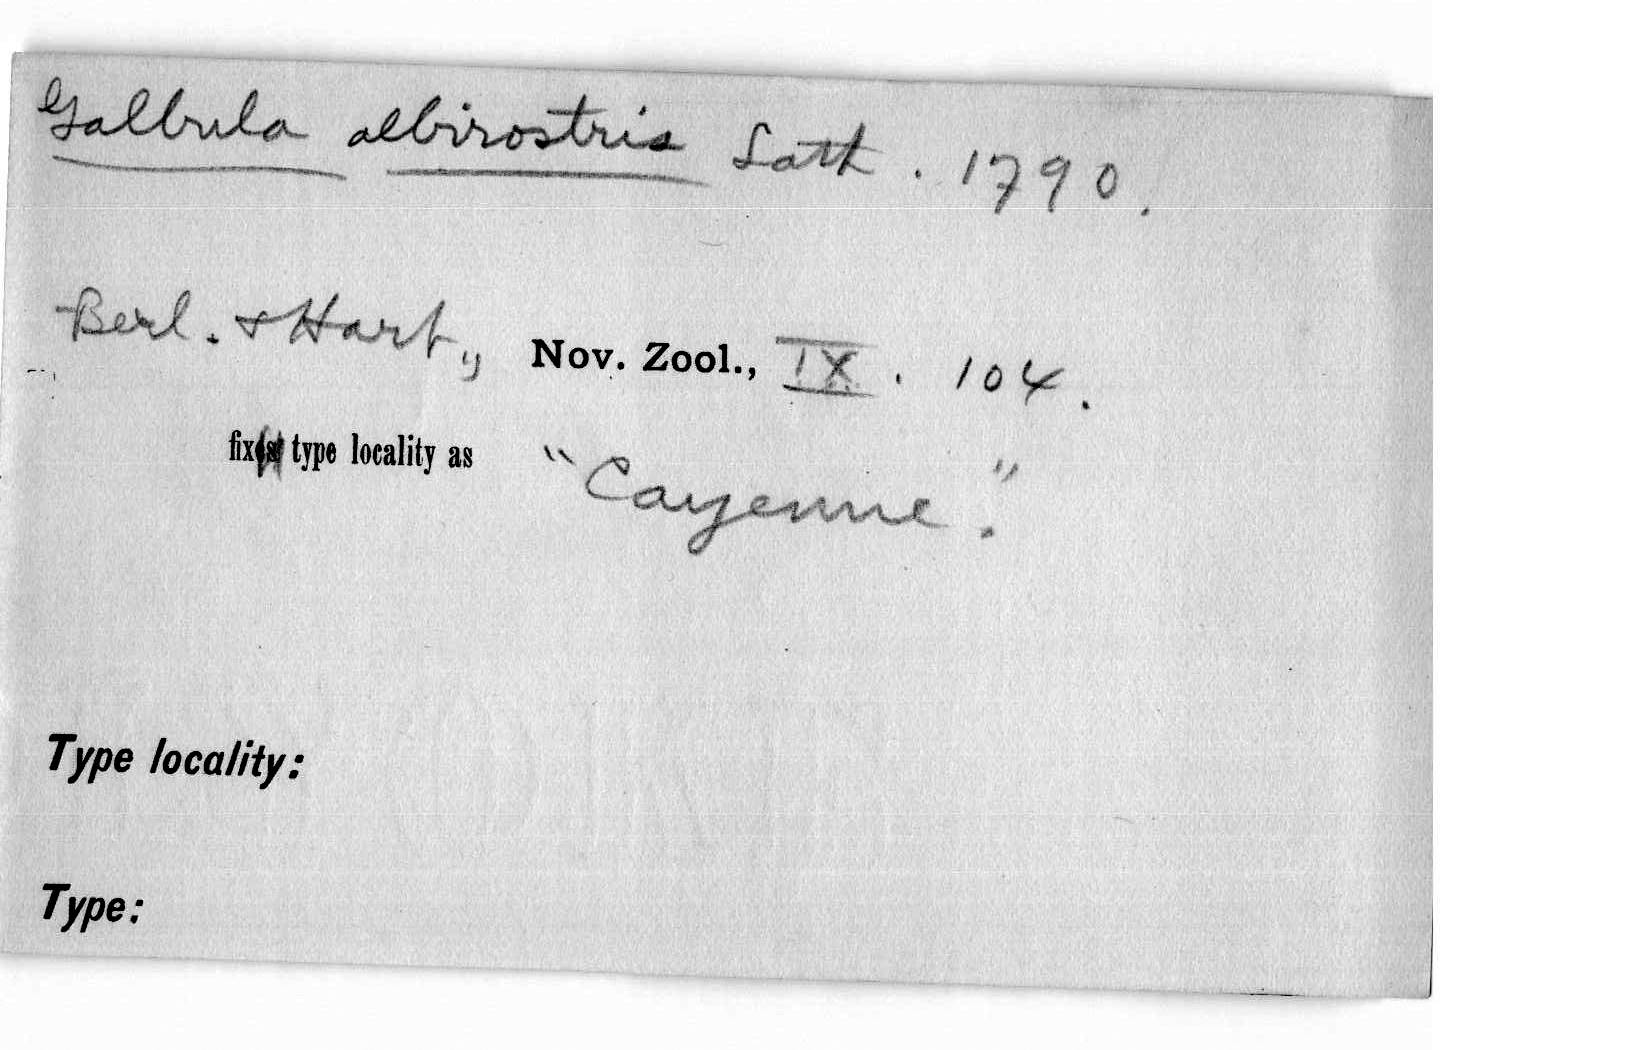 Galbula albirostris Lath. 1790.
Berl. & Hart., Nov. Zool., IX. 104.
fix type locality as "Cayenne."
Type locality:
Type: